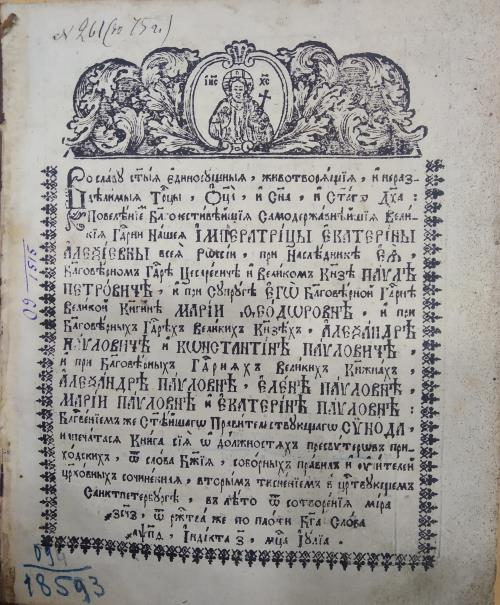 № 261 (10 75 г.)
ІИС ХС
Во славу ст҃ыѧ єдиносущныѧ, животворѧщїѧ, и нераз-
дѣлимыѧ Трⷪ҇цы, Ѻц҃а, и Сн҃а, и Ст҃агѡ Дх҃а:
Повелѣнїемъ Бл҃гочестивѣйшїѧ Самодержавнѣйшїѧ Вели-
кїѧ Гдⷭ҇рни Нашеѧ ІМПЕРАТРИЦЫ ЕКАТЕРИНЫ
АЛЕѮІЕВНЫ всеѧ Рѡссїи, при Наслѣдникѣ ЕѦ,
Бл҃говѣрномъ Гдⷭ҇рѣ Цесаревичѣ и Великомъ Кн҃зѣ ПАѴЛѢ
ПЕТРОВИЧѢ, и при Супругѣ ЕГѠ Бл҃говѣрной Гдⷭ҇рнѣ
Великой Кнг҃инѣ МАРІИ ѲЕОДѠРОВНѢ, и при
Бл҃говѣрныхъ Гдⷭ҇рѣхъ Великихъ Кн҃зѣхъ, АЛЕѮАНДРѢ
ПАѴЛОВИЧѢ и КѠНСТАНТІНѢ ПАѴЛОВИЧѢ,
и при Бл҃говѣрныхъ Гдⷭ҇рнѧхъ Великихъ Кн҃жнахъ,
АЛЕѮАНДРѢ ПАѴЛОВНѢ, ЕЛЕНѢ ПАѴЛОВНѢ
МАРІИ ПАѴЛОВНѢ и ЕКАТЕРІНѢ ПАѴЛОВНѢ:
Бл҃гвенїемъ же Ст҃ѣйшагѡ Правительствующагѡ СѴНОДА,
напечатасѧ Книга сїѧ ѡ должностѧхъ пресвѵтерѡвъ при-
ходскихъ, ѿ слова Бж҃їѧ, соборныхъ правилъ и ѹчителей
цр҃ковныхъ сочиненнаѧ, вторымъ тисненїемъ в цртвующемъ
Санктпетербургѣ, въ лѣто ѿ сотворенїѧ мїра
҂зсч҃з, ѿ ржⷭ҇тва же по плоти Бг҃а Слова
҂аѱп҃д, Індїкта з҃, мц҃а Іулїа.
09 1515
094
18593